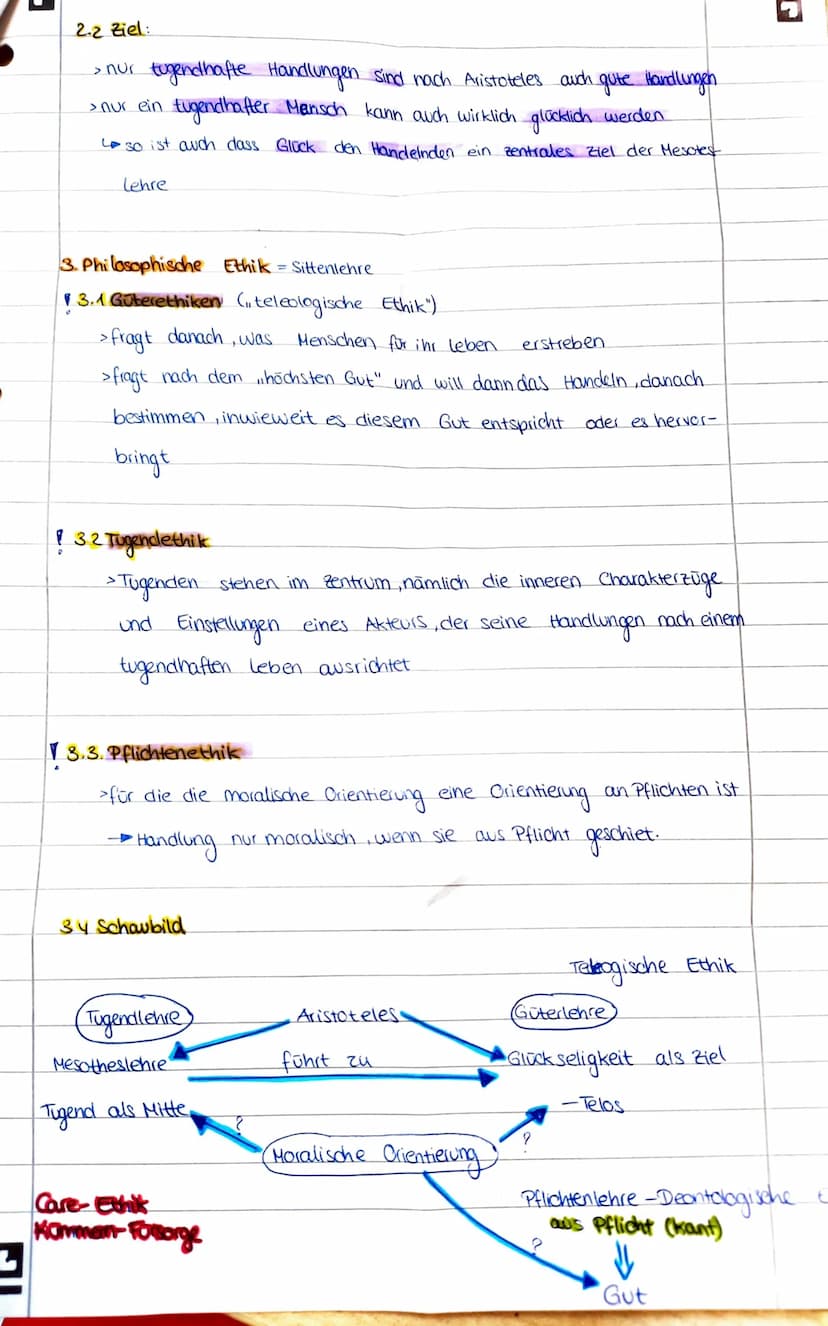 2.2 Ziel:
> nur tugendhafte Handlungen sind nach Aristoteles auch gute Handlungen
> nur ein tugendhafter Mensch kann auch wirklich glücklich werden
↳ so ist auch dass Glück den Handelnden ein zentrales Ziel der Mesotes
lehre
3. Philosophische Ethik = Sittenlehre
! 3.1 Güterethiken („teleologische Ethik")
> fragt danach, was Menschen für ihr Leben erstreben
> fragt nach dem „höchsten Gut" und will dann das Handeln, danach
bestimmen, inwieweit es diesem Gut entspricht oder es hervor-
bringt
! 3.2 Tugendethik
> Tugenden stehen im Zentrum, nämlich die inneren Charakterzüge
und Einstellungen eines Akteurs, der seine Handlungen nach einem
tugendhaften Leben ausrichtet
! 3.3. Pflichtenethik
> für die die moralische Orientierung eine Orientierung an Pflichten ist
→ Handlung nur moralisch, wenn sie aus Pflicht geschiet.
3.4 Schaubild
Ethik
Tugendlehre Aristoteles Güterlehre
Mesotheslehre führt zu Glückseligkeit als Ziel
Tugend als Mitte ? - Telos
Moralische Orientierung ?
Care-Ethik Pflichtenlehre - Deontologische
aus Pflicht (Kant)
?
Gut